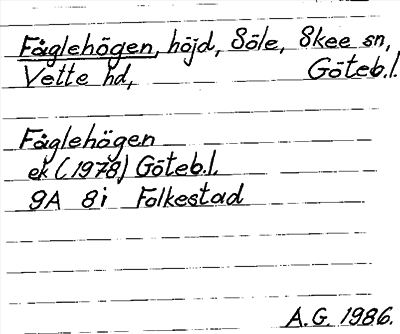 Fåglehögen, höjd, Söle, Skee sn,
Vette hd, Göteb.l.
Fåglehögen
ek (1978) Göteb.l.
9A 8i Folkestad
A.G. 1986.